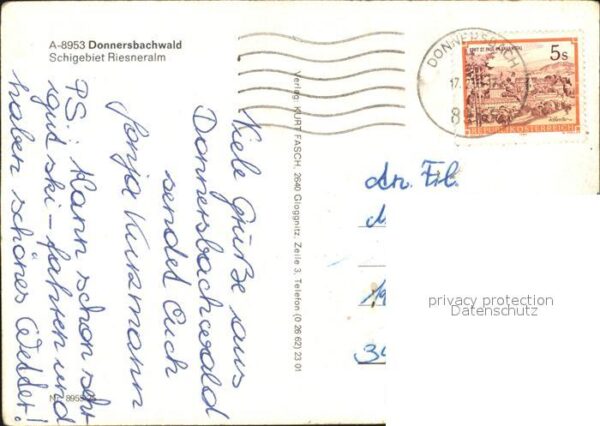 A-8953 Donnersbachwald
Schigebiet Riesneralm
Viele Grüße aus
Donnersbachwald
sendet Euch
Sonja Kurzmann
PS: Kann schon sehr
gut ski-fahren und
haben schönes Wetter!
Verlag: KURT FASCH, 2640 Gloggnitz, Zeile 3, Telefon (0 26 62) 23 01
DONNERSBACH
17.
5s
REPUBLIK ÖSTERREICH
An Frl.
privacy protection
Datenschutz